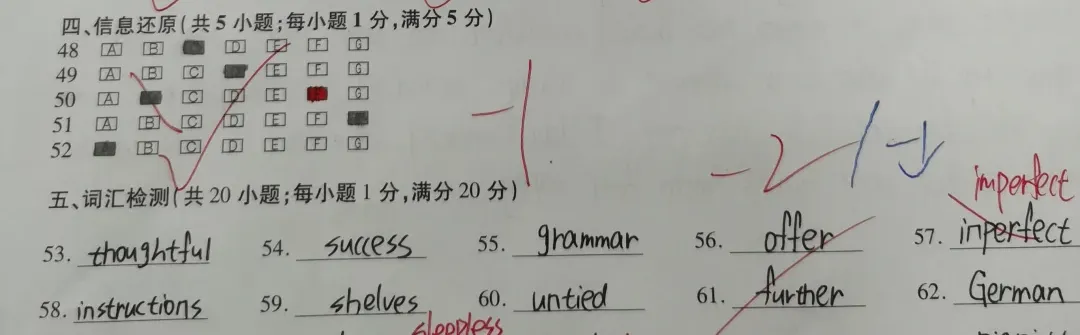 四、信息还原(共5小题;每小题1分,满分5分)
48 [A] [B] [D] [E] [F] [G]
49 [A] [B] [C] [E] [F] [G]
50 [A] [C] [D] [E] [G]
51 [A] [B] [C] [D] [E] [F]
52 [B] [C] [D] [E] [F] [G]
-1
-2
-1
五、词汇检测(共20小题;每小题1分,满分20分)
imperfect
53. thoughtful 54. success 55. grammar 56. offer 57. inperfect
58. instructions 59. shelves 60. untied 61. further 62. German
sleepless